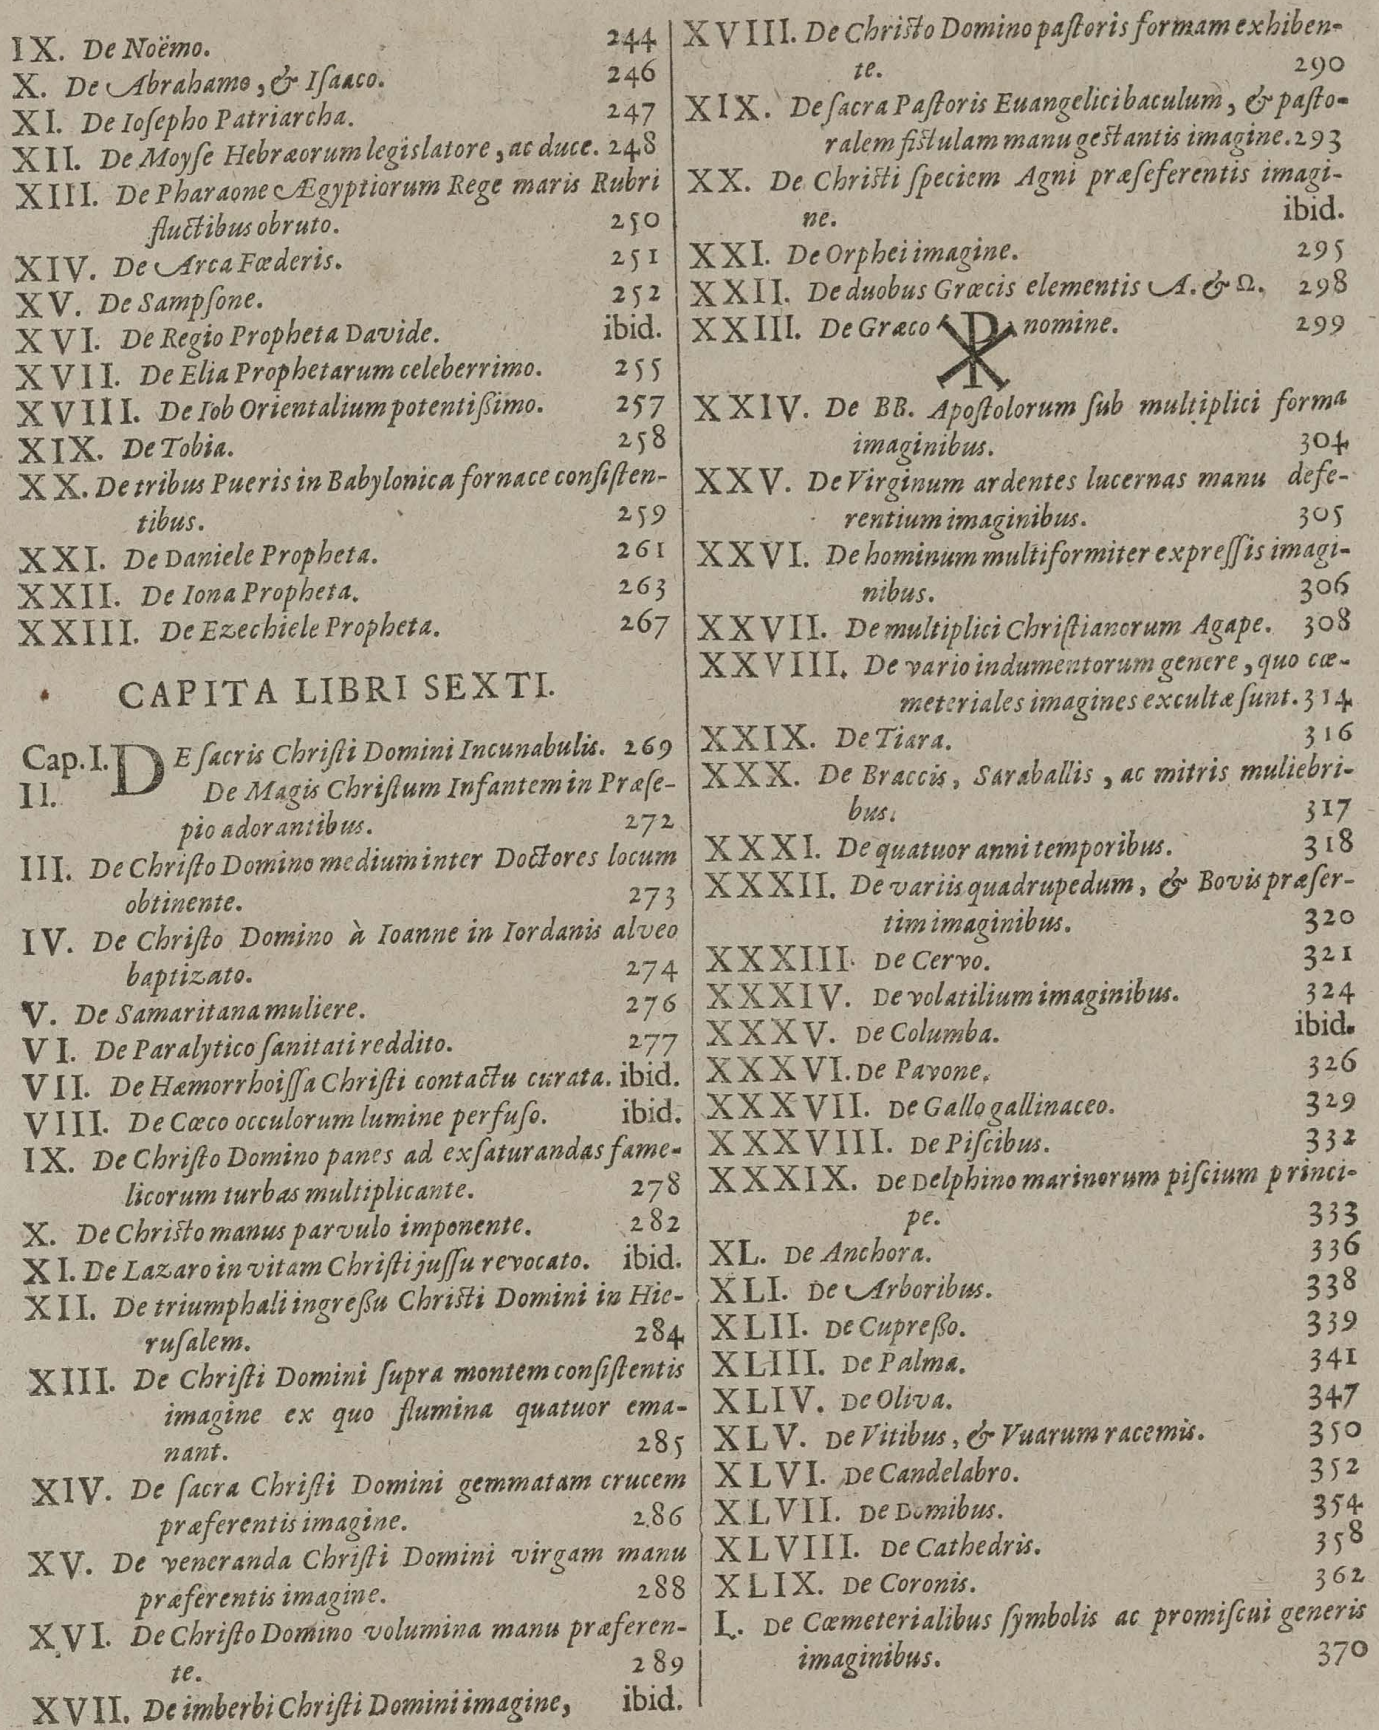 IX. De Noëmo. 244
X. De Abrahamo, & Iſaaco. 246
XI. De Ioſepho Patriarcha. 247
XII. De Moyſe Hebræorum legislatore, ac duce. 248
XIII. De Pharaone Ægyptiorum Rege maris Rubri
fluctibus obruto. 250
XIV. De Arca Fœderis. 251
XV. De Sampſone. 252
XVI. De Regio Propheta Davide. ibid.
XVII. De Elia Prophetarum celeberrimo. 255
XVIII. De Iob Orientalium potentißimo. 257
XIX. De Tobia. 258
XX. De tribus Pueris in Babylonica fornace conſiſten-
tibus. 259
XXI. De Daniele Propheta. 261
XXII. De Iona Propheta. 263
XXIII. De Ezechiele Propheta. 267
CAPITA LIBRI SEXTI.
Cap. I. DE ſacris Chriſti Domini Incunabulis. 269
II. De Magis Chriſtum Infantem in Præſe-
pio adorantibus. 272
III. De Chriſto Domino medium inter Doctores locum
obtinente. 273
IV. De Chriſto Domino à Ioanne in Iordanis alveo
baptizato. 274
V. De Samaritana muliere. 276
VI. De Paralytico ſanitati reddito. 277
VII. De Hæmorrhoiſſa Chriſti contactu curata. ibid.
VIII. De Cœco occulorum lumine perfuſo. ibid.
IX. De Chriſto Domino panes ad exſaturandas fame-
licorum turbas multiplicante. 278
X. De Chriſto manus parvulo imponente. 282
XI. De Lazaro in vitam Chriſti juſſu revocato. ibid.
XII. De triumphali ingreßu Chriſti Domini in Hie-
ruſalem. 284
XIII. De Chriſti Domini ſupra montem conſiſtentis
imagine ex quo flumina quatuor ema-
nant. 285
XIV. De ſacra Chriſti Domini gemmatam crucem
præferentis imagine. 286
XV. De veneranda Chriſti Domini virgam manu
præferentis imagine. 288
XVI. De Chriſto Domino volumina manu præferen-
te. 289
XVII. De imberbi Chriſti Domini imagine, ibid.
XVIII. De Chriſto Domino paſtoris formam exhiben-
te. 290
XIX. De ſacra Paſtoris Euangelici baculum, & paſto-
ralem fiſtulam manu geſtantis imagine. 293
XX. De Chriſti ſpeciem Agni præſeferentis imagi-
ne. ibid.
XXI. De Orphei imagine. 295
XXII. De duobus Græcis elementis A. & Ω. 298
XXIII. De Græco ☧ nomine. 299
XXIV. De BB. Apoſtolorum ſub multiplici forma
imaginibus. 304
XXV. De Virginum ardentes lucernas manu defe-
rentium imaginibus. 305
XXVI. De hominum multiformiter expreſſis imagi-
nibus. 306
XXVII. De multiplici Chriſtianorum Agape. 308
XXVIII. De vario indumentorum genere, quo cœ-
meteriales imagines excultæ ſunt. 314
XXIX. De Tiara. 316
XXX. De Braccis, Saraballis, ac mitris muliebri-
bus. 317
XXXI. De quatuor anni temporibus. 318
XXXII. De variis quadrupedum, & Bovis præſer-
tim imaginibus. 320
XXXIII. De Cervo. 321
XXXIV. De volatilium imaginibus. 324
XXXV. De Columba. ibid.
XXXVI. De Pavone. 326
XXXVII. De Gallo gallinaceo. 329
XXXVIII. De Piſcibus. 332
XXXIX. De Delphino marinorum piſcium princi-
pe. 333
XL. De Anchora. 336
XLI. De Arboribus. 338
XLII. De Cupreßo. 339
XLIII. De Palma. 341
XLIV. De Oliva. 347
XLV. De Vitibus, & Vuarum racemis. 350
XLVI. De Candelabro. 352
XLVII. De Domibus. 354
XLVIII. De Cathedris. 358
XLIX. De Coronis. 362
L. De Cœmeterialibus ſymbolis ac promiſcui generis
imaginibus. 370